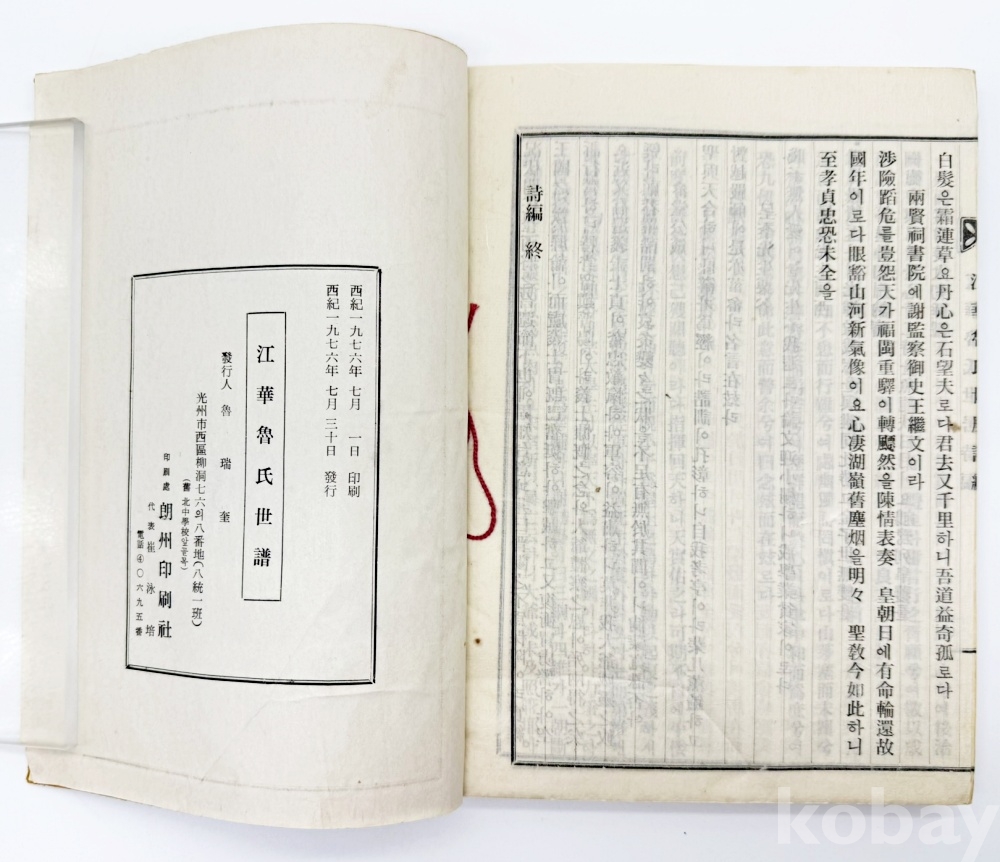 白髮은霜連草요丹心은石望夫로다君去又千里하니吾道益奇孤로다
兩賢祠書院에謝監察御史王繼文이라
涉險蹈危를豈怨天가福閩重驛이轉飄然을陳情表奏 皇朝日에有命輪還故
國年이로다眼豁山河新氣像이요心凄湖嶺舊塵烟을明々 聖敎今如此하니
至孝貞忠恐未全을
詩編 終
西紀一九七六年 七月 一日 印刷
西紀一九七六年 七月 三十日 發行
江華魯氏世譜
發行人 魯瑞奎
光州市西區柳洞七六의八番地(八統一班)
(舊 北中學校앞골목)
印刷處 朗州印刷社
代表 崔泳培
電話④〇六九五番
kobay